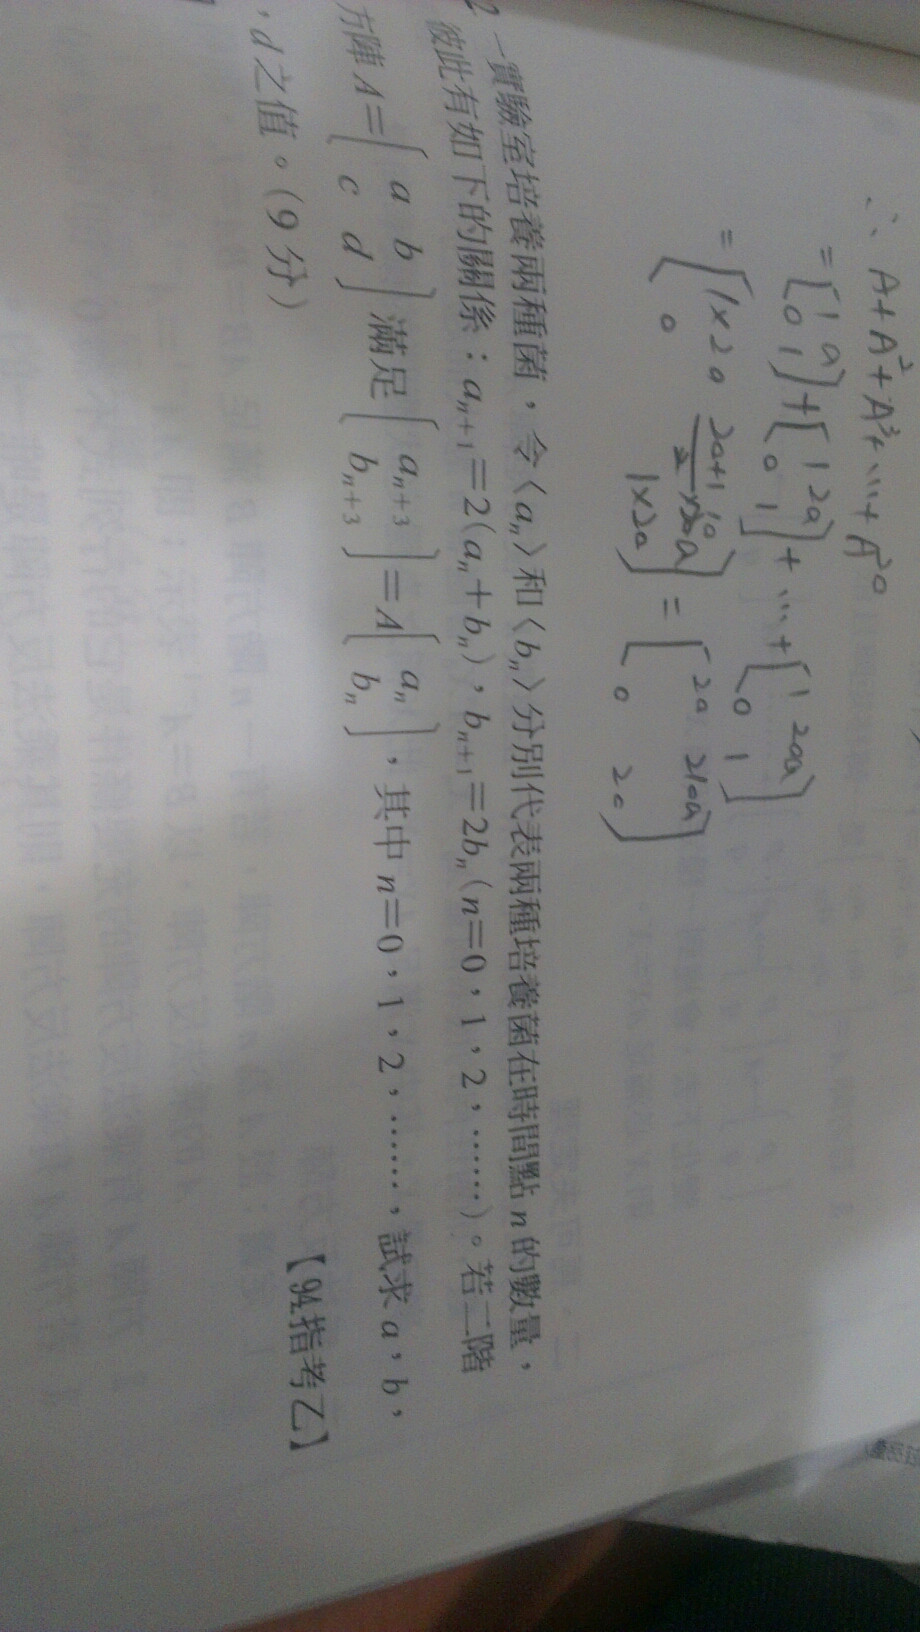 ∴ A+A²+A³+⋯+A²⁰
=[1 a; 0 1]+[1 2a; 0 1]+⋯+[1 20a; 0 1]
=[1×20 20+1/2×20a; 0 1×20]=[20 210a; 0 20]
2 一實驗室培養兩種菌,令〈aₙ〉和〈bₙ〉分別代表兩種培養菌在時間點 n 的數量,
彼此有如下的關係:aₙ₊₁=2(aₙ+bₙ),bₙ₊₁=2bₙ(n=0,1,2,……)。若二階
方陣 A=[a b; c d] 滿足 [aₙ₊₃; bₙ₊₃]=A[aₙ; bₙ],其中 n=0,1,2,……,試求 a,b,
,d 之值。(9 分)
【94.指考乙】